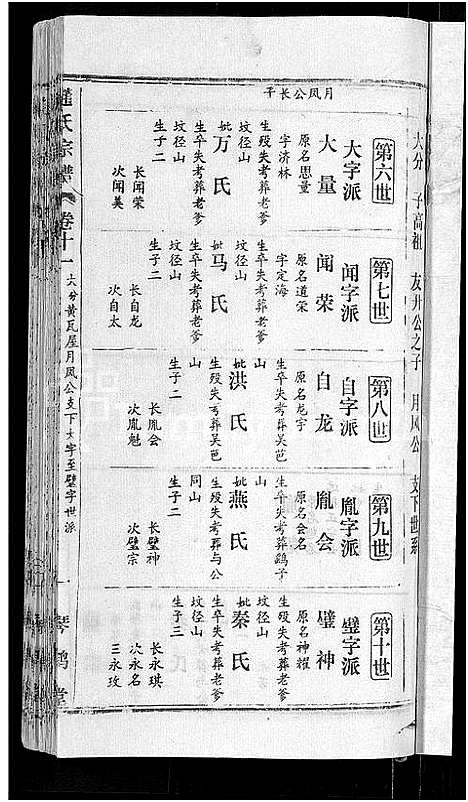 大分 子高祖 友升公之子 月凤公 支下世系
月凤公长子
第六世
大字派
大量
原名思量
字济林
生殁失考葬老爹
坟径山
妣万氏
生卒失考葬老爹
坟径山
生子二
长闻荣
次闻美
第七世
闻字派
闻荣
原名道荣
字定海
生卒失考葬老爹
坟径山
妣马氏
生卒失考葬老爹
坟径山
生子二
长自龙
次自太
第八世
自字派
自龙
原名龙宇
生卒失考葬吴芭
山
妣洪氏
生殁失考葬吴芭
山
生子二
长胤会
次胤魁
第九世
胤字派
胤会
原名会名
生卒失考葬鹞子
山
妣燕氏
生殁失考葬与公
同山
生子二
长璧神
次璧宗
第十世
璧字派
璧神
原名神耀
生殁失考葬老爹
坟径山
妣秦氏
生卒失考葬老爹
坟径山
生子三
长永琪
次永名
三永玫
氏宗谱 卷十一 大分黄瓦屋月凤公支下大字至璧字世派 一 琴鹤堂